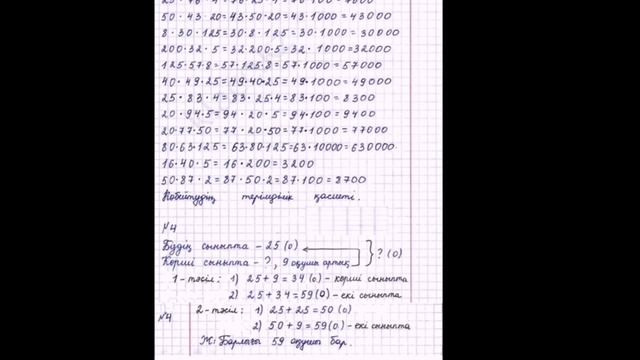 50·43·20=43·50·20=43·1000=43000
8·30·125=30·8·125=30·1000=30000
200·32·5=32·200·5=32·1000=32000
125·57·8=57·125·8=57·1000=57000
40·49·25=49·40·25=49·1000=49000
25·83·4=83·25·4=83·100=8300
20·94·5=94·20·5=94·100=9400
20·77·50=77·20·50=77·1000=77000
80·63·125=63·80·125=63·10000=630000
16·40·5=16·200=3200
50·87·2=87·50·2=87·100=8700
Көбейтудің терімділік қасиеті.
№4
Біздің сыныпта – 25 (о)
Көрші сыныпта – ?, 9 оқушы артық } ? (о)
1-тәсіл: 1) 25+9=34 (о) – көрші сыныпта
2) 25+34=59 (о) – екі сыныпта
№4 2-тәсіл: 1) 25+25=50 (о)
2) 50+9=59 (о) – екі сыныпта
Ж: Барлығы 59 оқушы бар.